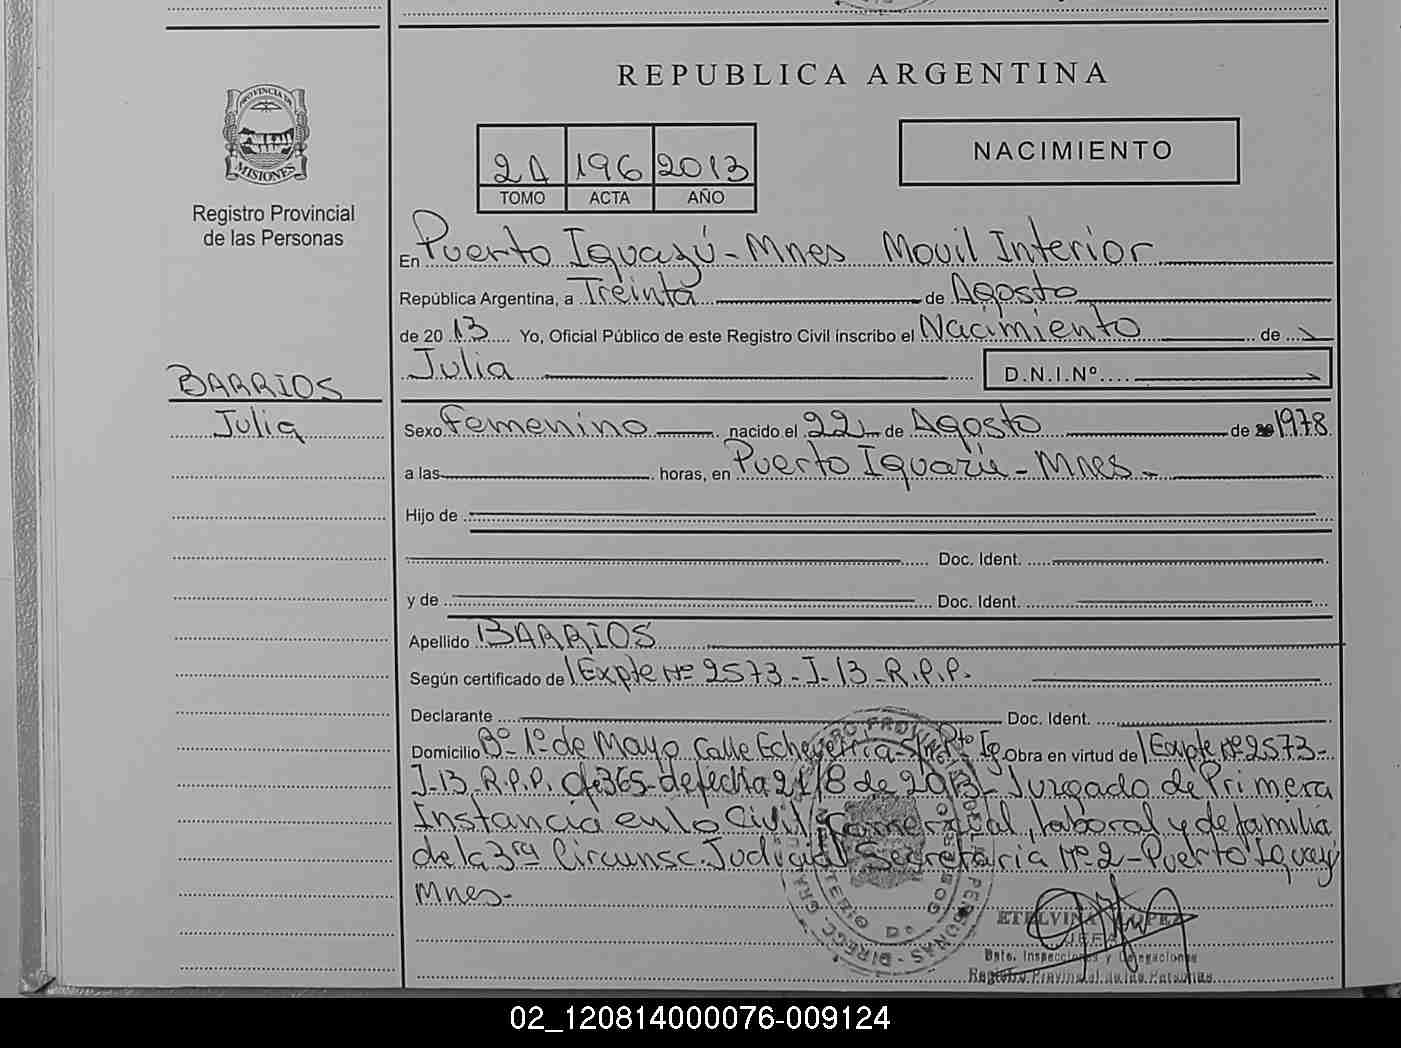 REPUBLICA ARGENTINA
PROVINCIA DE
MISIONES
Registro Provincial
de las Personas
2A 196 2013
TOMO ACTA AÑO
NACIMIENTO
En Puerto Iguazú - Mnes Movil Interior
República Argentina, a Treinta de Agosto
de 20 13 Yo, Oficial Público de este Registro Civil inscribo el Nacimiento de
Julia D.N.I.Nº
BARRIOS
Julia
Sexo Femenino nacido el 22 de Agosto de 1978
a las horas, en Puerto Iguazú - Mnes -
Hijo de
Doc. Ident.
y de Doc. Ident.
Apellido BARRIOS
Según certificado de Expte Nº 2573 - J - 13 - R.P.P.
Declarante Doc. Ident.
Domicilio Bº 1º de Mayo Calle Echeverria - S/nº Pto Ig Obra en virtud de Expte Nº 2573 -
J - 13 - R.P.P. Of. 365 - de fecha 21/8 de 2013 - Juzgado de Primera
Instancia en lo Civil, Comercial, laboral y de familia
de la 3ra Circunsc. Judicial Secretaria Nº 2 - Puerto Iguazú
Mnes -
ETELVINA LOPEZ
JEFA
Dpto. Inspecciones y Delegaciones
Registro Provincial de las Personas
02_120814000076-009124